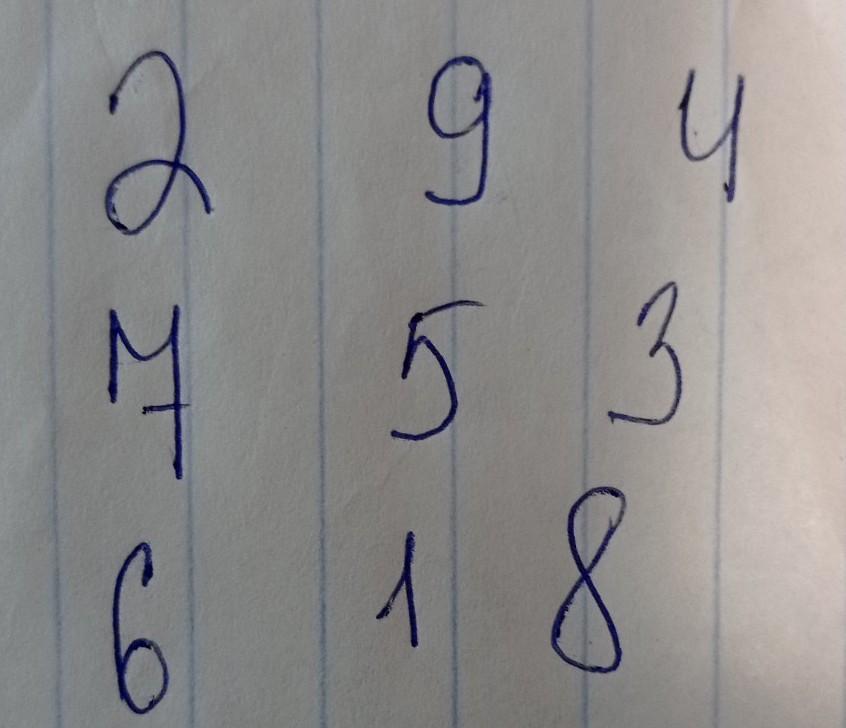 2 9 4
7 5 3
6 1 8